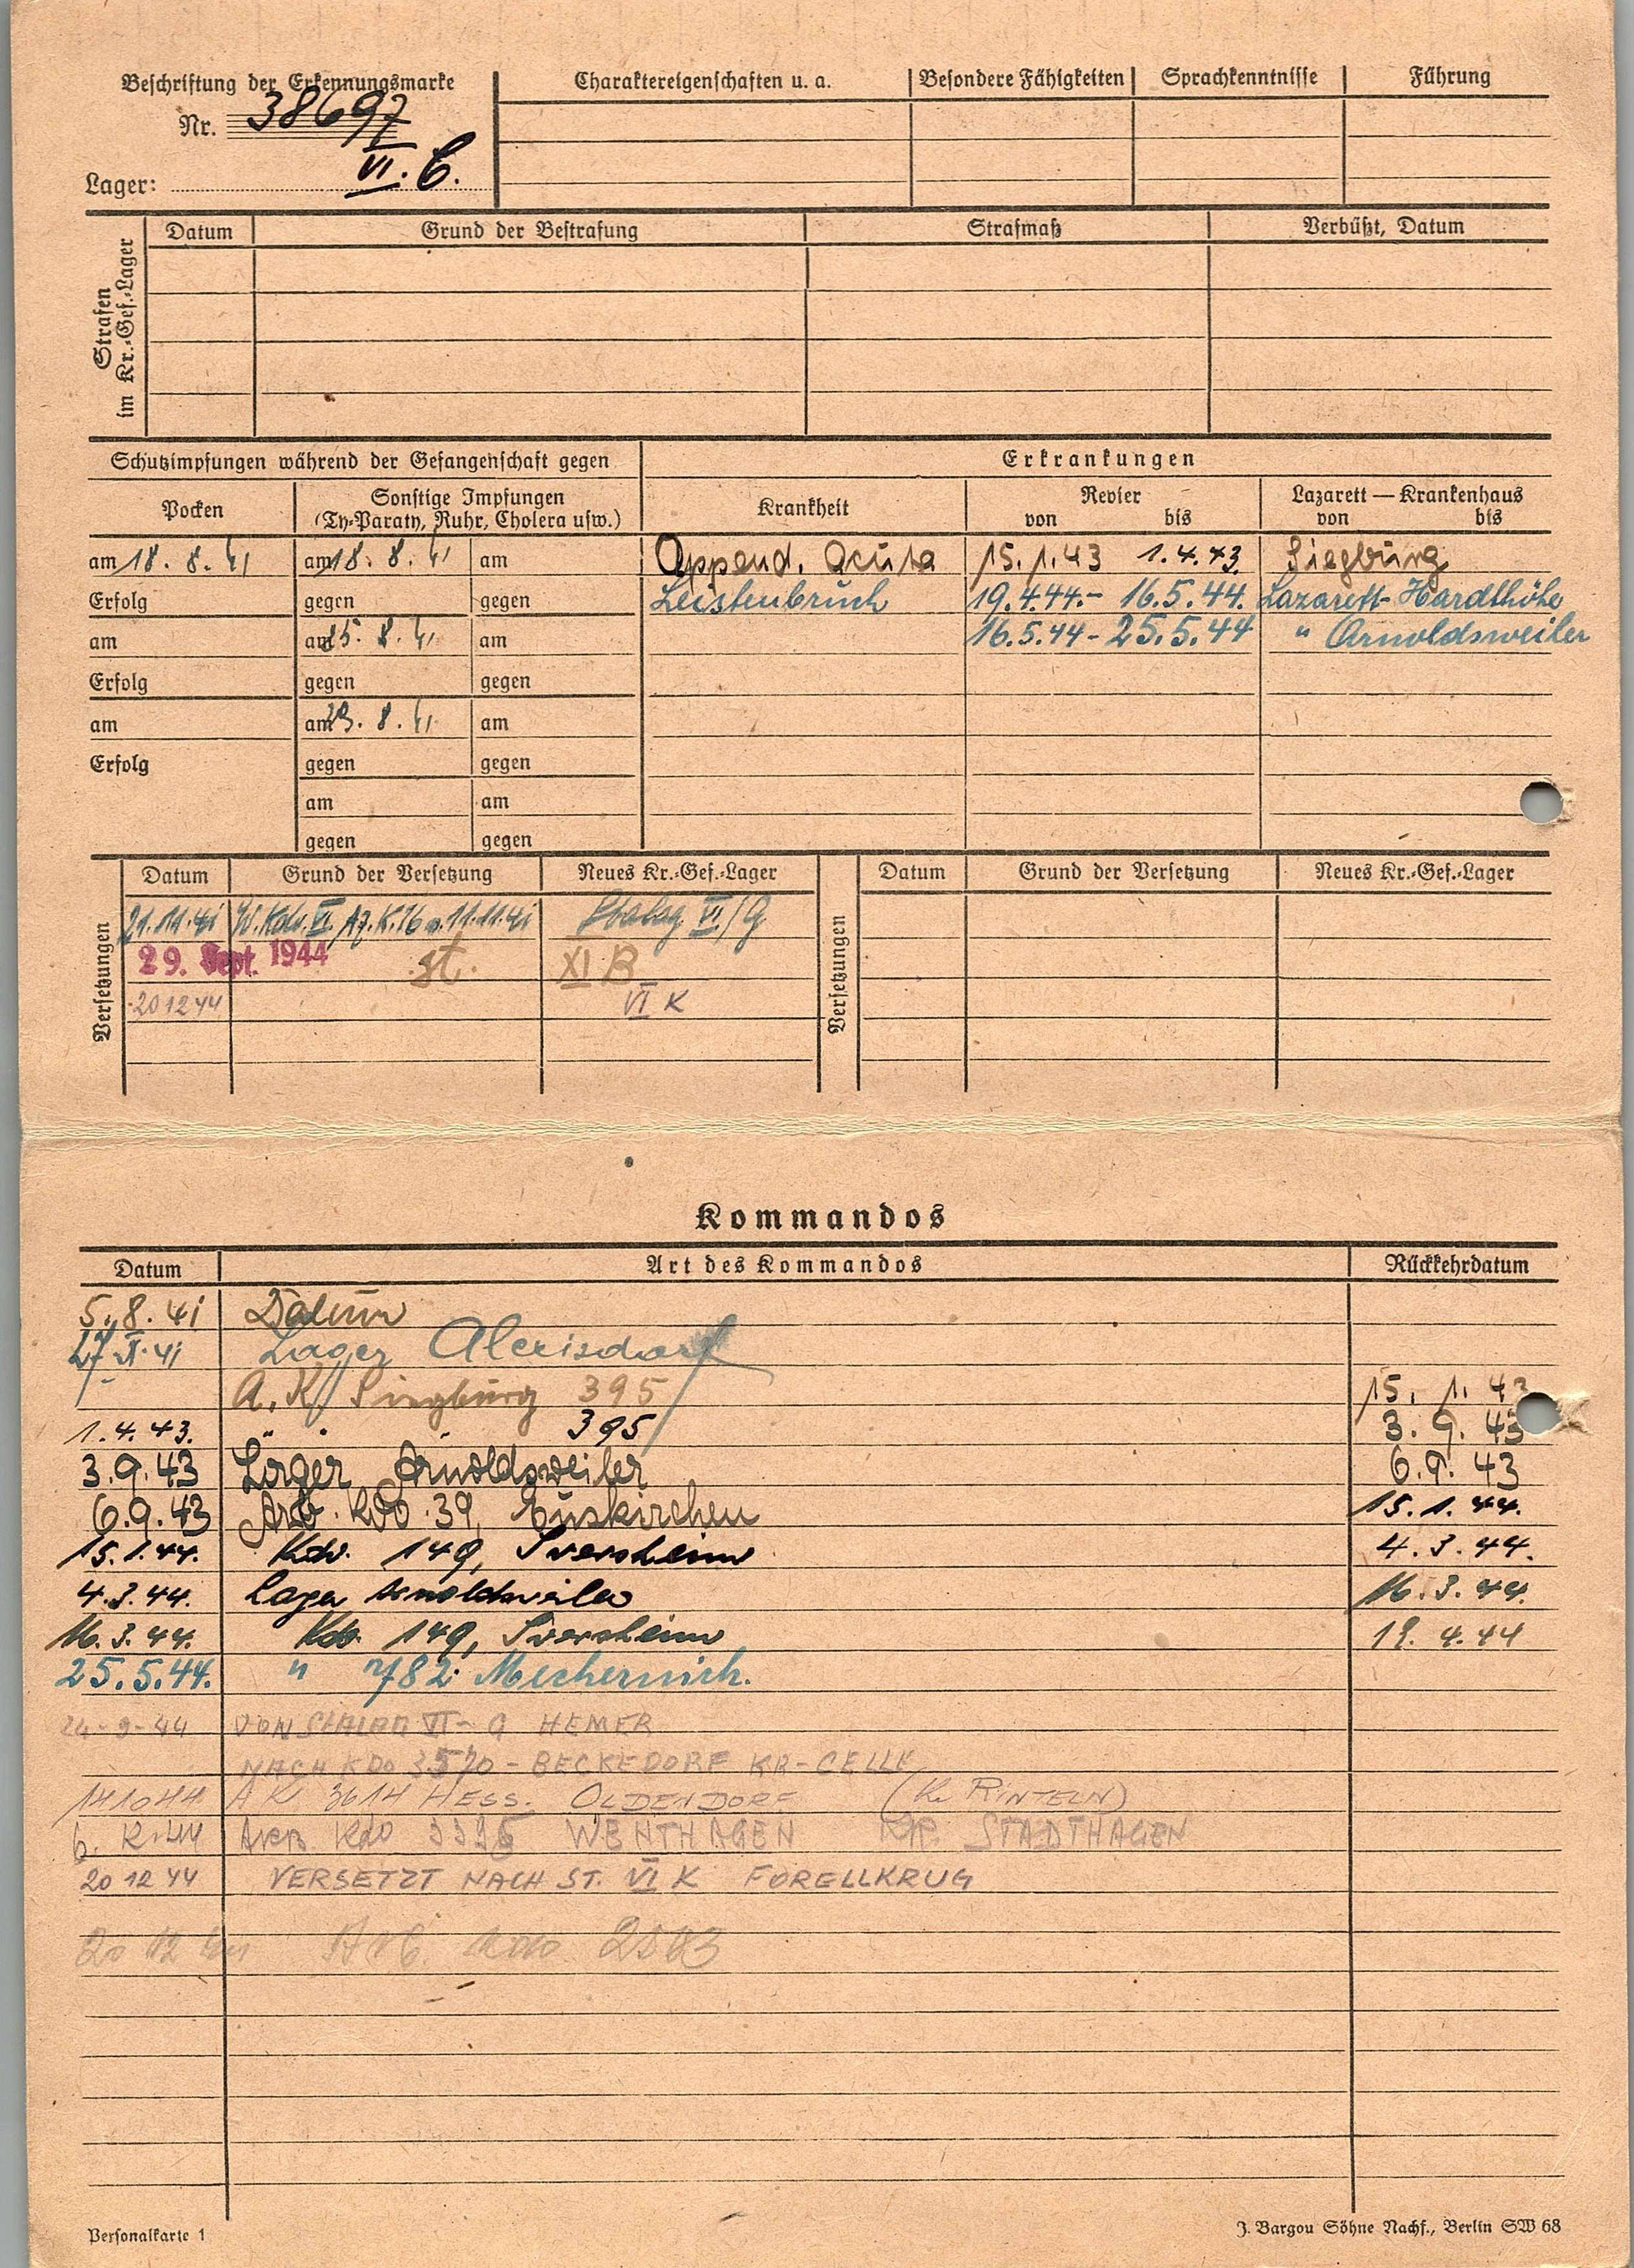 Beschriftung der Erkennungsmarke
Nr. 38697
Lager: VI. C.
Charaktereigenschaften u. a. Besondere Fähigkeiten Sprachkenntnisse Führung
Strafen im Kr.-Gef.-Lager
Datum Grund der Bestrafung Strafmaß Verbüßt, Datum
Schutzimpfungen während der Gefangenschaft gegen Erkrankungen
Pocken Sonstige Impfungen (Ty-Paraty, Ruhr, Cholera usw.) Krankheit Revier von bis Lazarett — Krankenhaus von bis
am 18. 8. 41 am 18. 8. 41 am Append. acuta 15.1.43 1.4.43. Siegburg
Erfolg gegen gegen Leistenbruch 19.4.44.- 16.5.44. Lazarett-Hardthöhe
am am 25. 8. 41 am 16.5.44 - 25.5.44 " Arnoldsweiler
Erfolg gegen gegen
am am 8. 41 am
Erfolg gegen gegen
am am
gegen gegen
Versetzungen
Datum Grund der Versetzung Neues Kr.-Gef.-Lager
21.11.41 W.Kdo. VI. Az. K.16 v. 11.11.41 Stalag VI/G
29. Sept. 1944 st. XI B
20 12 44 VI K
Versetzungen
Datum Grund der Versetzung Neues Kr.-Gef.-Lager
Kommandos
Datum Art des Kommandos Rückkehrdatum
5. 8. 41
41 Lager Alexisdorf
A. K. Siegburg 395 15. 1. 43
1. 4. 43. " " 395 3. 9. 43
3.9.43 Lager Arnoldsweiler 6.9. 43
6.9.43 Arb. Kdo 39, Euskirchen 15.1.44.
15.1.44. Kdo. 149, Iversheim 4. 3. 44.
4.3.44. Lager Arnoldsweiler 16. 3. 44.
16. 3. 44. Kdo. 149, Iversheim 19. 4. 44
25.5.44. " 782 Mechernich.
24-9-44 VON STALAG VI-G HEMER
NACH KDO 3570 - BECKEDORF KR-CELLE
141044 AK 3614 HESS. OLDENDORF (Kr RINTELN)
ARB. KDO WENTHAGEN KR. STADTHAGEN
20 12 44 VERSETZT NACH ST. VI K FORELLKRUG
20 12 44 Arb. Kdo
Personalkarte 1
J. Bargou Söhne Nachf., Berlin SW 68